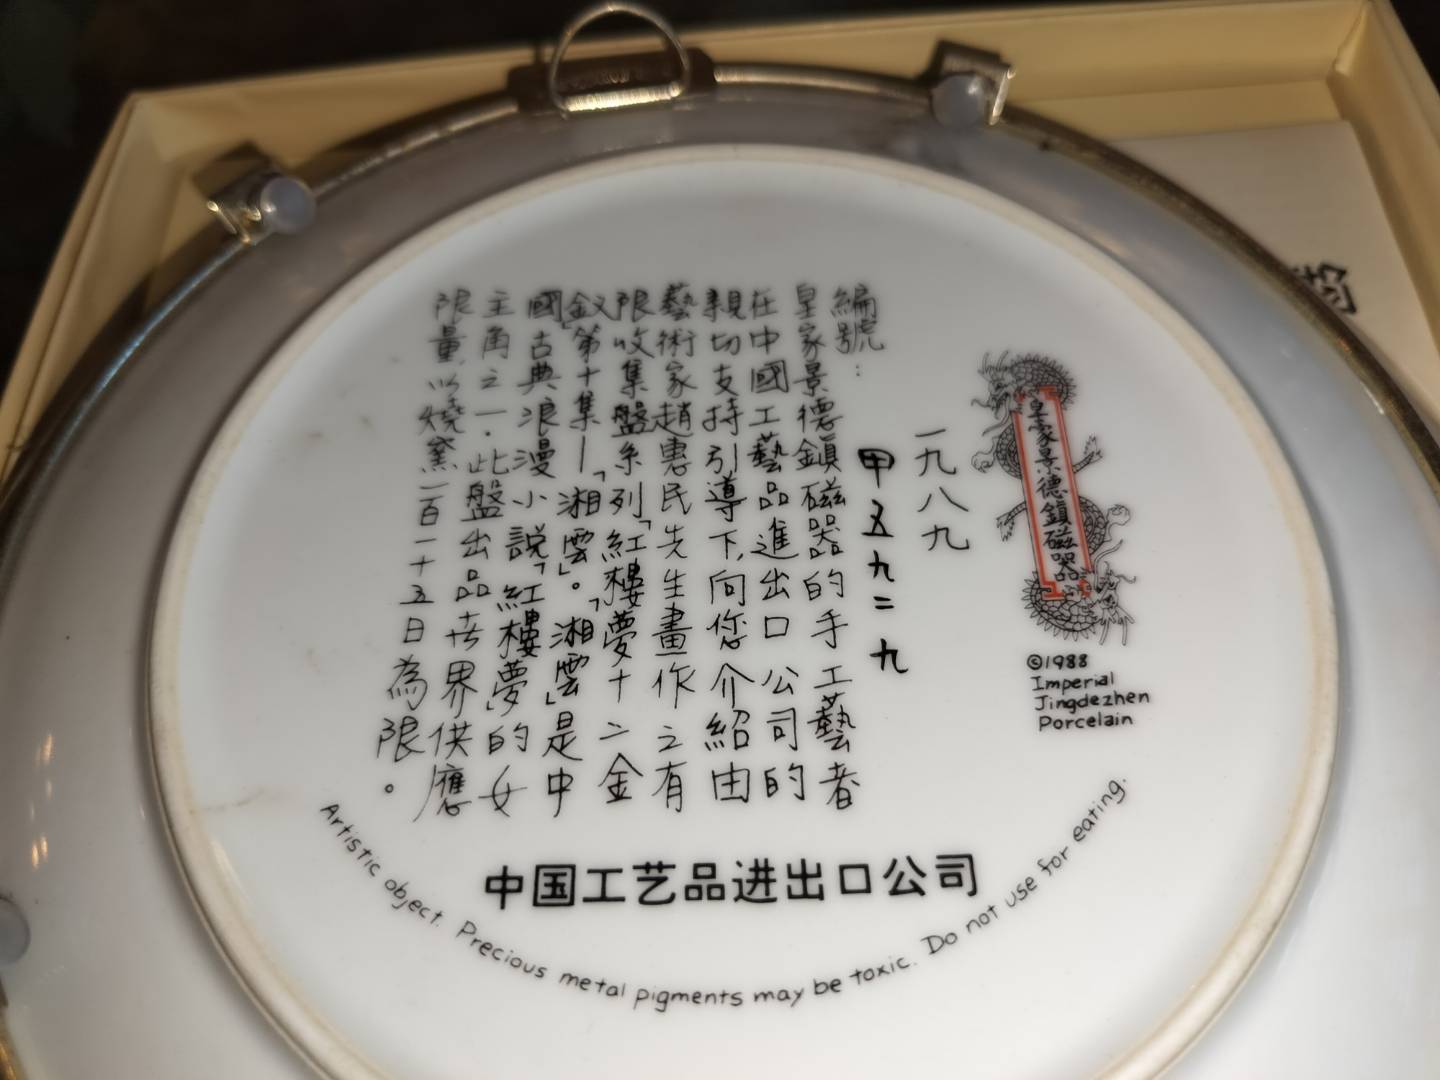 皇家景德鎮磁器
©1988
Imperial
Jingdezhen
Porcelain
一九八九
甲五九二九
編號：
皇家景德鎮磁器的手工藝者
在中國工藝品進出口公司的
親切支持引導下,向您介紹由
藝術家趙惠民先生畫作之有
限收集盤系列「紅樓夢十二金
釵」第十集—「湘雲」。「湘雲」是中
國古典浪漫小說「紅樓夢」的女
主角之一.此盤出品世界供應
限量,以燒窯一百一十五日為限。
中国工艺品进出口公司
Artistic object. Precious metal pigments may be toxic. Do not use for eating.